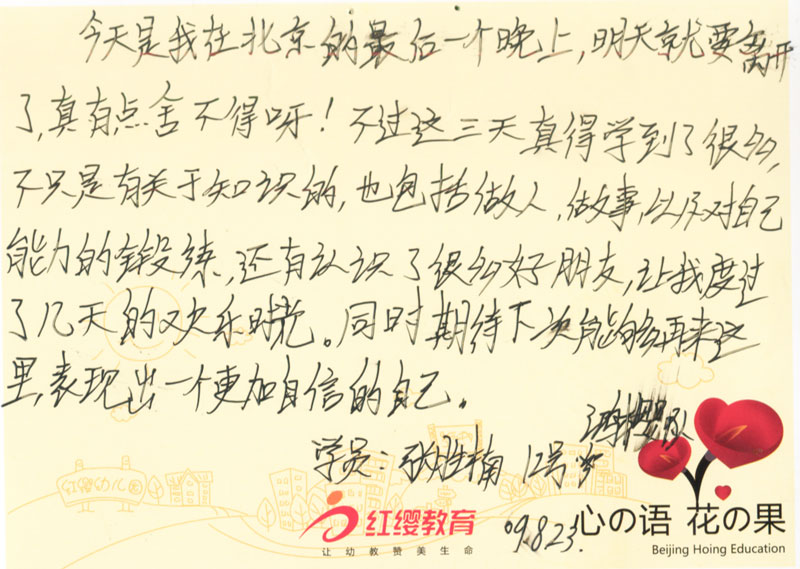 今天是我在北京的最后一个晚上,明天就要离开
了,真有点舍不得呀!不过这三天真得学到了很多,
不只是有关于知识的,也包括做人,做事,以及对自己
能力的锻练,还有认识了很多好朋友,让我度过
了几天的欢乐时光。同时期待下次能够再来这
里,表现出一个更加自信的自己。
学员:张胜楠 12号
红缨幼儿园
红缨教育
让幼教赞美生命
09.8.23.
心の语 花の果
Beijing Hoing Education